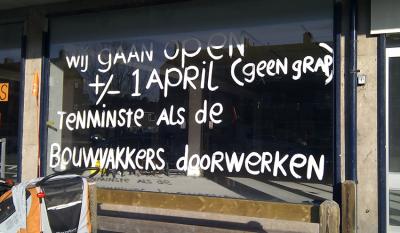 wij gaan open
+/- 1 April (geen grap)
Tenminste als de
Bouwvakkers doorwerken